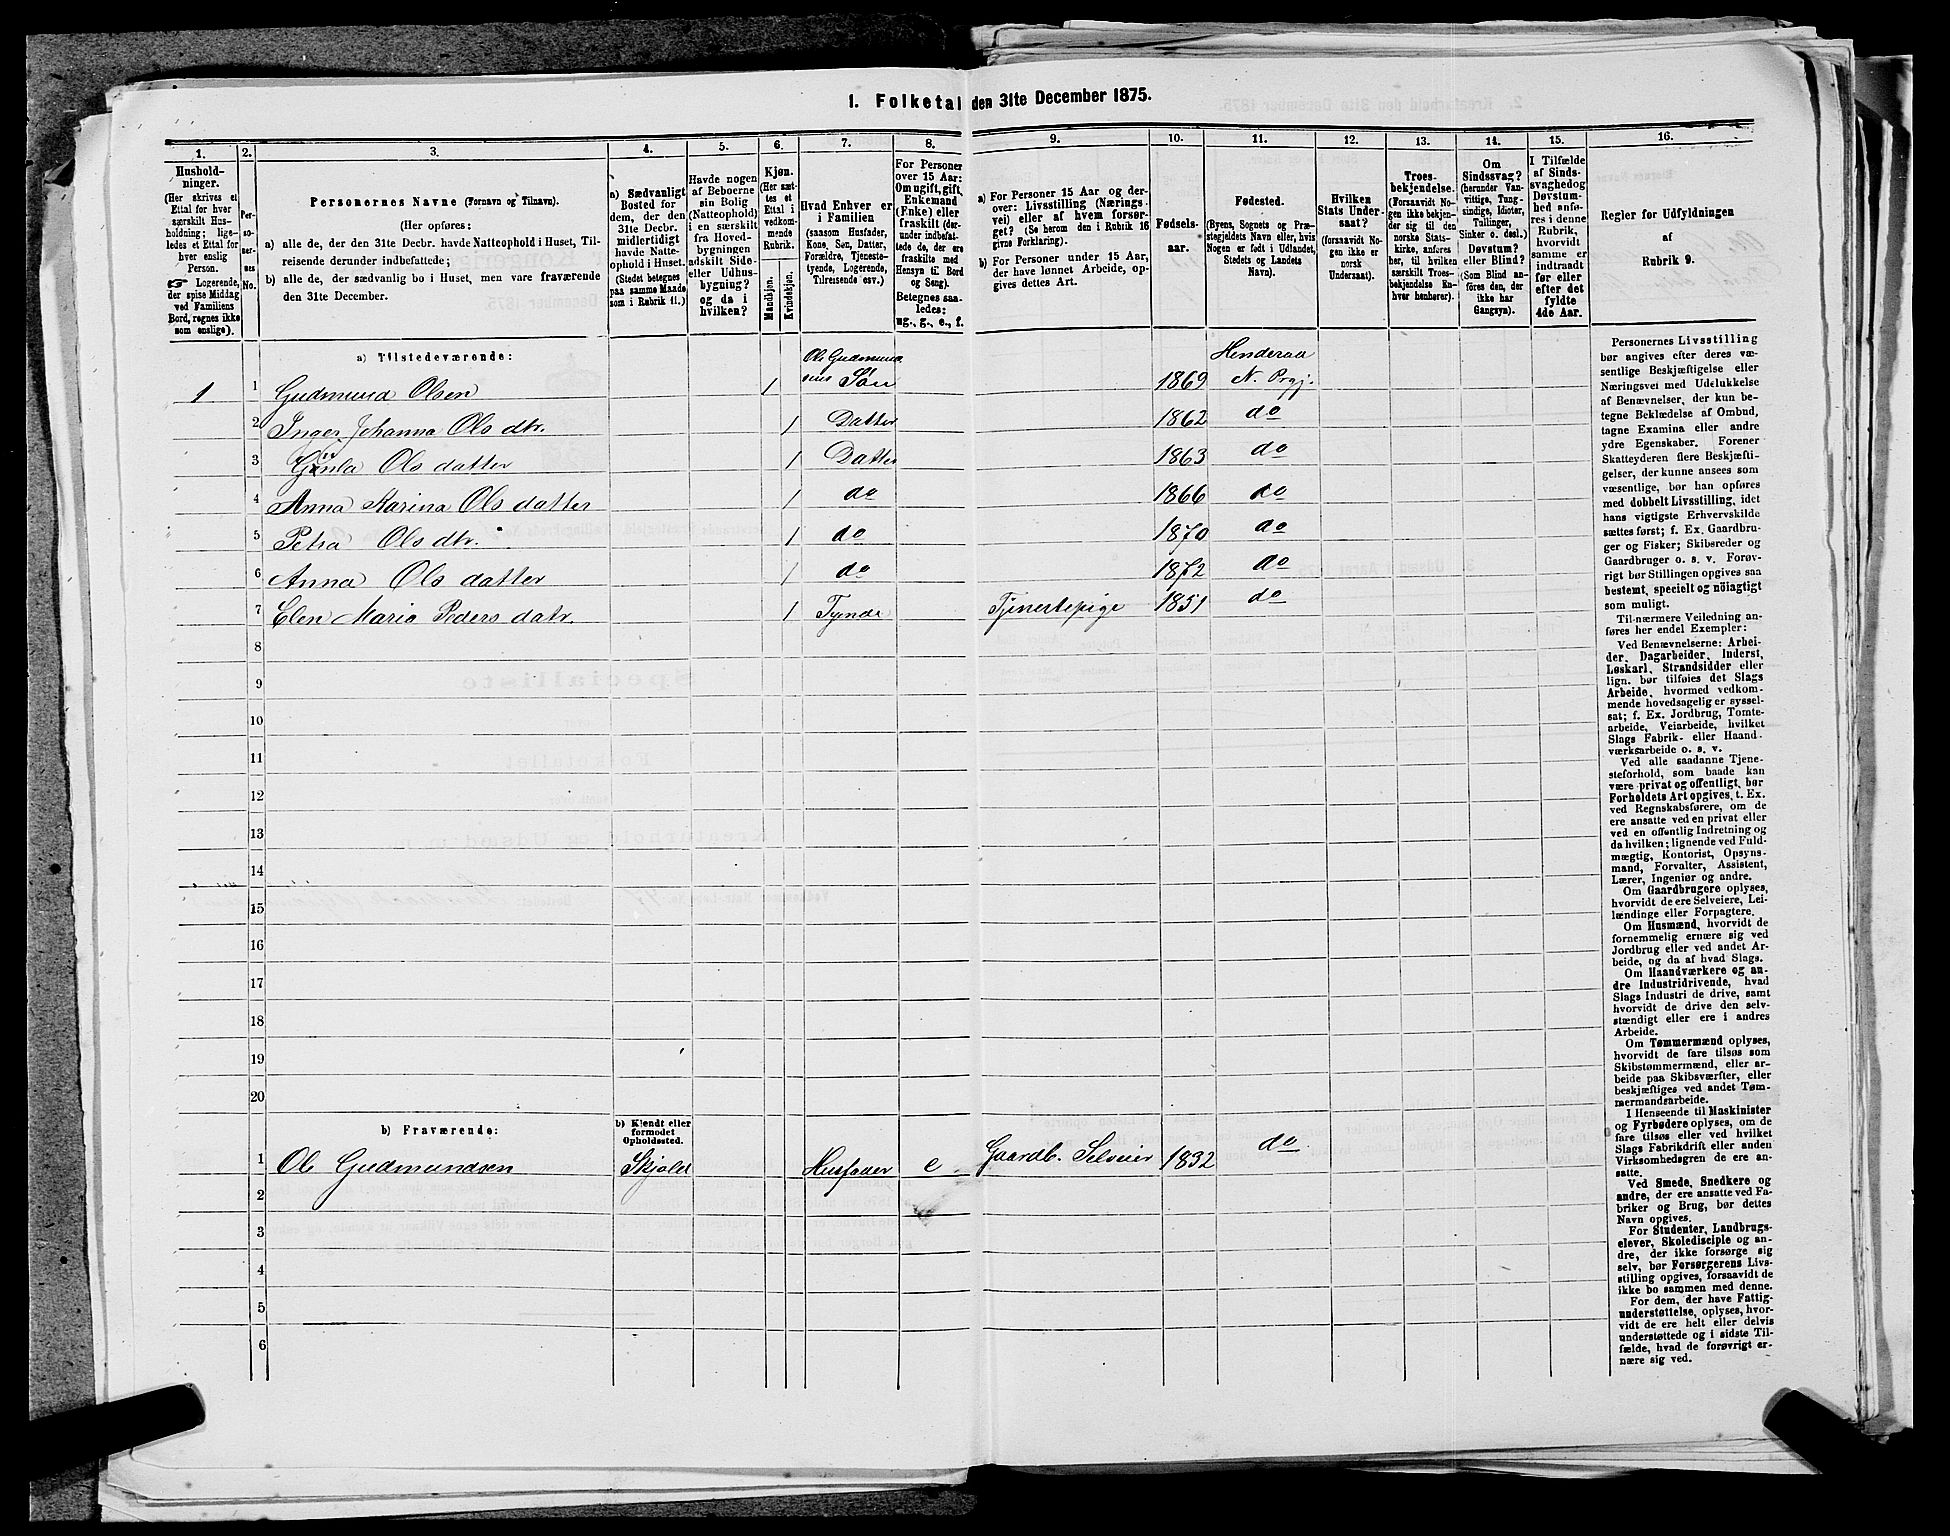 1. Folketal den 31te December 1875.
1. 2. 3. 4. 5. 6. 7. 8. 9. 10. 11. 12. 13. 14. 15. 16.
Hushold-
ninger.
(Her skrives et
Ettal for hver
særskilt Hus-
holdning; lige-
ledes et Ettal for
hver enslig
Person.
☞ Logerende,
der spise Middag
ved Familiens
Bord, regnes ikke
som enslige).
Per-
so-
ner-
nes
No.
Personernes Navne (Fornavn og Tilnavn).
(Her opføres:
a) alle de, der den 31te Decbr. havde Natteophold i Huset, Til-
reisende derunder indbefattede;
b) alle de, der sædvanlig bo i Huset, men vare fraværende
den 31te December.
a) Sædvanligt
Bosted for
dem, der den
31te Decbr.
midlertidigt
havde Natte-
ophold i Huset.
(Stedet betegnes
paa samme Maade
som i Rubrik 11.)
Havde nogen
af Beboerne
sin Bolig
(Natteophold)
i en særskilt
fra Hoved-
bygningen
adskilt Side-
eller Udhus-
bygning?
og da i
hvilken?
Kjøn.
(Her sæt-
tes et
Ettal i
vedkom-
mende
Rubrik.
Mandkjøn.
Kvindekjøn.
Hvad Enhver er
i Familien
(saasom Husfader,
Kone, Søn, Datter,
Forældre, Tjeneste-
tyende, Logerende,
Tilreisende osv.)
For Personer
over 15 Aar:
Om ugift, gift,
Enkemand
(Enke) eller
fraskilt (der-
under indbefat-
tede de, der ere
fraskilte med
Hensyn til Bord
og Seng).
Betegnes saa-
ledes:
ug., g., e., f.
a) For Personer 15 Aar og der-
over: Livsstilling (Nærings-
vei) eller af hvem forsør-
get? (Se herom den i Rubrik 16
givne Forklaring).
b) For Personer under 15 Aar,
der have lønnet Arbeide, op-
gives dettes Art.
Fødsels-
aar.
Fødested.
(Byens, Sognets og Præ-
stegjeldets Navn eller, hvis
Nogen er født i Udlandet,
Stedets og Landets
Navn).
Hvilken
Stats Under-
saat?
(forsaavidt No-
gen ikke er
norsk
Undersaat).
Troes-
bekjendelse.
(Forsaavidt No-
gen ikke bekjen-
der sig til den
norske Stats-
kirke, anføres
her, til hvilken
særskilt Troes-
bekjendelse En-
hver henhører).
Om
Sindssvag?
(herunder Van-
vittige, Tung-
sindige, Idioter,
Tullinger,
Sinker o. desl.)
Døvstum?
eller Blind?
(Som Blind an-
føres den, der
ikke har
Gangsyn).
I Tilfælde
af Sinds-
svaghed og
Døvstum-
hed anfø-
res i denne
Rubrik,
hvorvidt
samme er
indtraadt
før eller
efter det
fyldte
4de Aar.
Regler for Udfyldningen
af
Rubrik 9.
a) Tilstedeværende:
1 1 Gudmund Olsen 1 Ole Gudmund
sens Søn 1869 Henderaa
N. Prgj.
2 Inger Johanna Ols dtr. 1 Datter 1862 do
3 Ols datter 1 Datter 1863 do
4 Anna Karina Ols datter 1 do 1866 do
5 Petra Ols dtr. 1 do 1870 do
6 Anna Ols datter 1 do 1872 do
7 Elen Maria Peders datr. 1 Tynde Tjenestepige 1851 do
8
9
10
11
12
13
14
15
16
17
18
19
20
b) Fraværende:
b) Kjendt eller
formodet
Opholdssted.
1 Ole Gudmundsen Skjold Husfader e Gaardb. Selveier 1832 do
2
3
4
5
6
Personernes Livsstilling
bør angives efter deres væ-
sentlige Beskjæftigelse eller
Næringsvei med Udelukkelse
af Benævnelser, der kun be-
tegne Beklædelse af Ombud,
tagne Examina eller andre
ydre Egenskaber. Forener
Skatteyderen flere Beskjæfti-
gelser, der kunne ansees som
væsentlige, bør han opføres
med dobbelt Livsstilling, idet
hans vigtigste Erhvervskilde
sættes først; f. Ex. Gaardbru-
ger og Fisker; Skibsreder og
Gaardbruger o. s. v. Forøv-
rigt bør Stillingen opgives saa
bestemt, specielt og nöiagtigt
som muligt.
Til nærmere Veiledning an-
føres her endel Exempler:
Ved Benævnelserne: Arbei-
der, Dagarbeider, Inderst,
Løskarl, Strandsidder eller
lign. bør tilføies det Slags
Arbeide, hvormed vedkom-
mende hovedsagelig er syssel-
sat; f. Ex. Jordbrug, Tomte-
arbeide, Veiarbeide, hvilket
Slags Fabrik- eller Haand-
værksarbeide o. s. v.
Ved alle saadanne Tjene-
steforhold, som baade kan
være privat og offentligt, bør
Forholdets Art opgives, t. Ex.
ved Regnskabsførere, om de
ere ansatte ved en privat eller
ved en offentlig Indretning og
da hvilken; lignende ved Fuld-
mægtig, Kontorist, Opsyns-
mand, Forvalter, Assistent,
Lærer, Ingeniør og andre.
Om Gaardbrugere oplyses,
hvorvidt de ere Selveiere, Lei-
lændinge eller Forpagtere.
Om Husmænd, hvorvidt de
fornemmelig ernære sig ved
Jordbrug eller ved andet Ar-
beide, og da af hvad Slags.
Om Haandværkere og an-
dre Industridrivende, hvad
Slags Industri de drive, samt
hvorvidt de drive den selv-
stændigt eller ere i andres
Arbeide.
Om Tømmermænd oplyses,
hvorvidt de fare tilsøs som
Skibstømmermænd, eller ar-
beide paa Skibsværfter, eller
beskjæftiges ved andet Tøm-
mermandsarbeide.
I Henseende til Maskinister
og Fyrbødere oplyses, om de
fare tilsøs eller ved hvilket
Slags Fabrikdrift eller anden
Virksomhedsgren de ere an-
satte.
Ved Smede, Snedkere og
andre, der ere ansatte ved Fa-
briker og Brug, bør dettes
Navn opgives.
For Studenter, Landbrugs-
elever, Skoledisciple og an-
dre, der ikke forsørge sig
selv, bør Forsørgerens Livs-
stilling opgives, forsaavidt de
ikke bo sammen med denne.
For dem, der have Fattig-
understøttelse, oplyses, hvor-
vidt de ere helt eller delvis
understøttede og i sidste Til-
fælde, hvad de forøvrigt er-
nære sig ved.